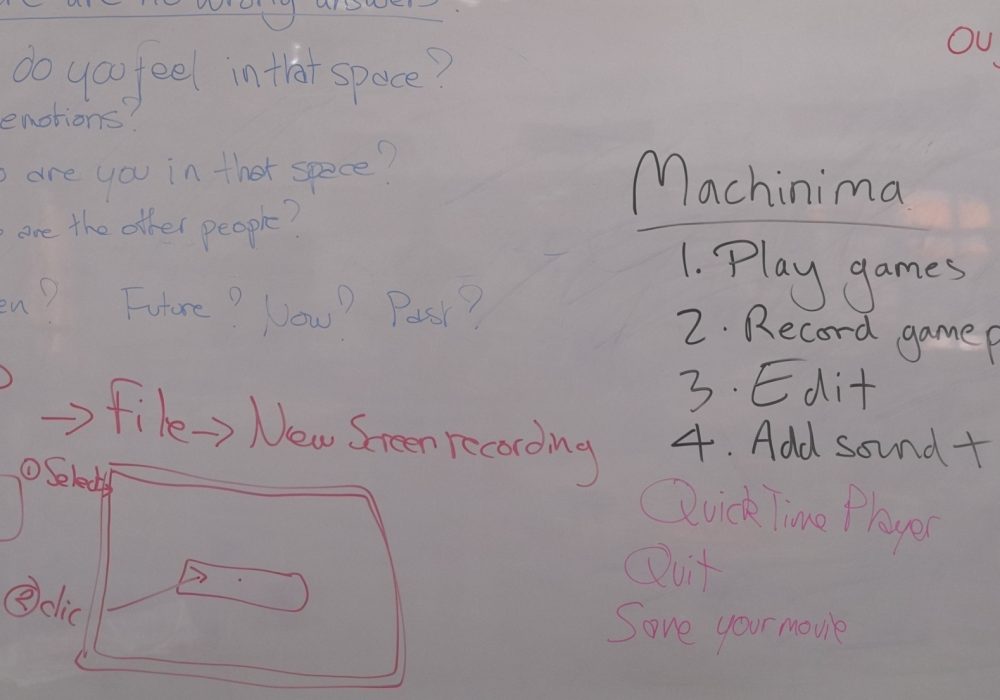 are no wrong answers.
do you feel in that space?
emotions?
are you in that space?
are the other people?
Future? Now? Past?
→ File → New Screen recording
① Select
② clic
Machinima
1. Play games
2. Record gamep
3. Edit
4. Add sound +
QuickTime Player
Quit
Save your movie